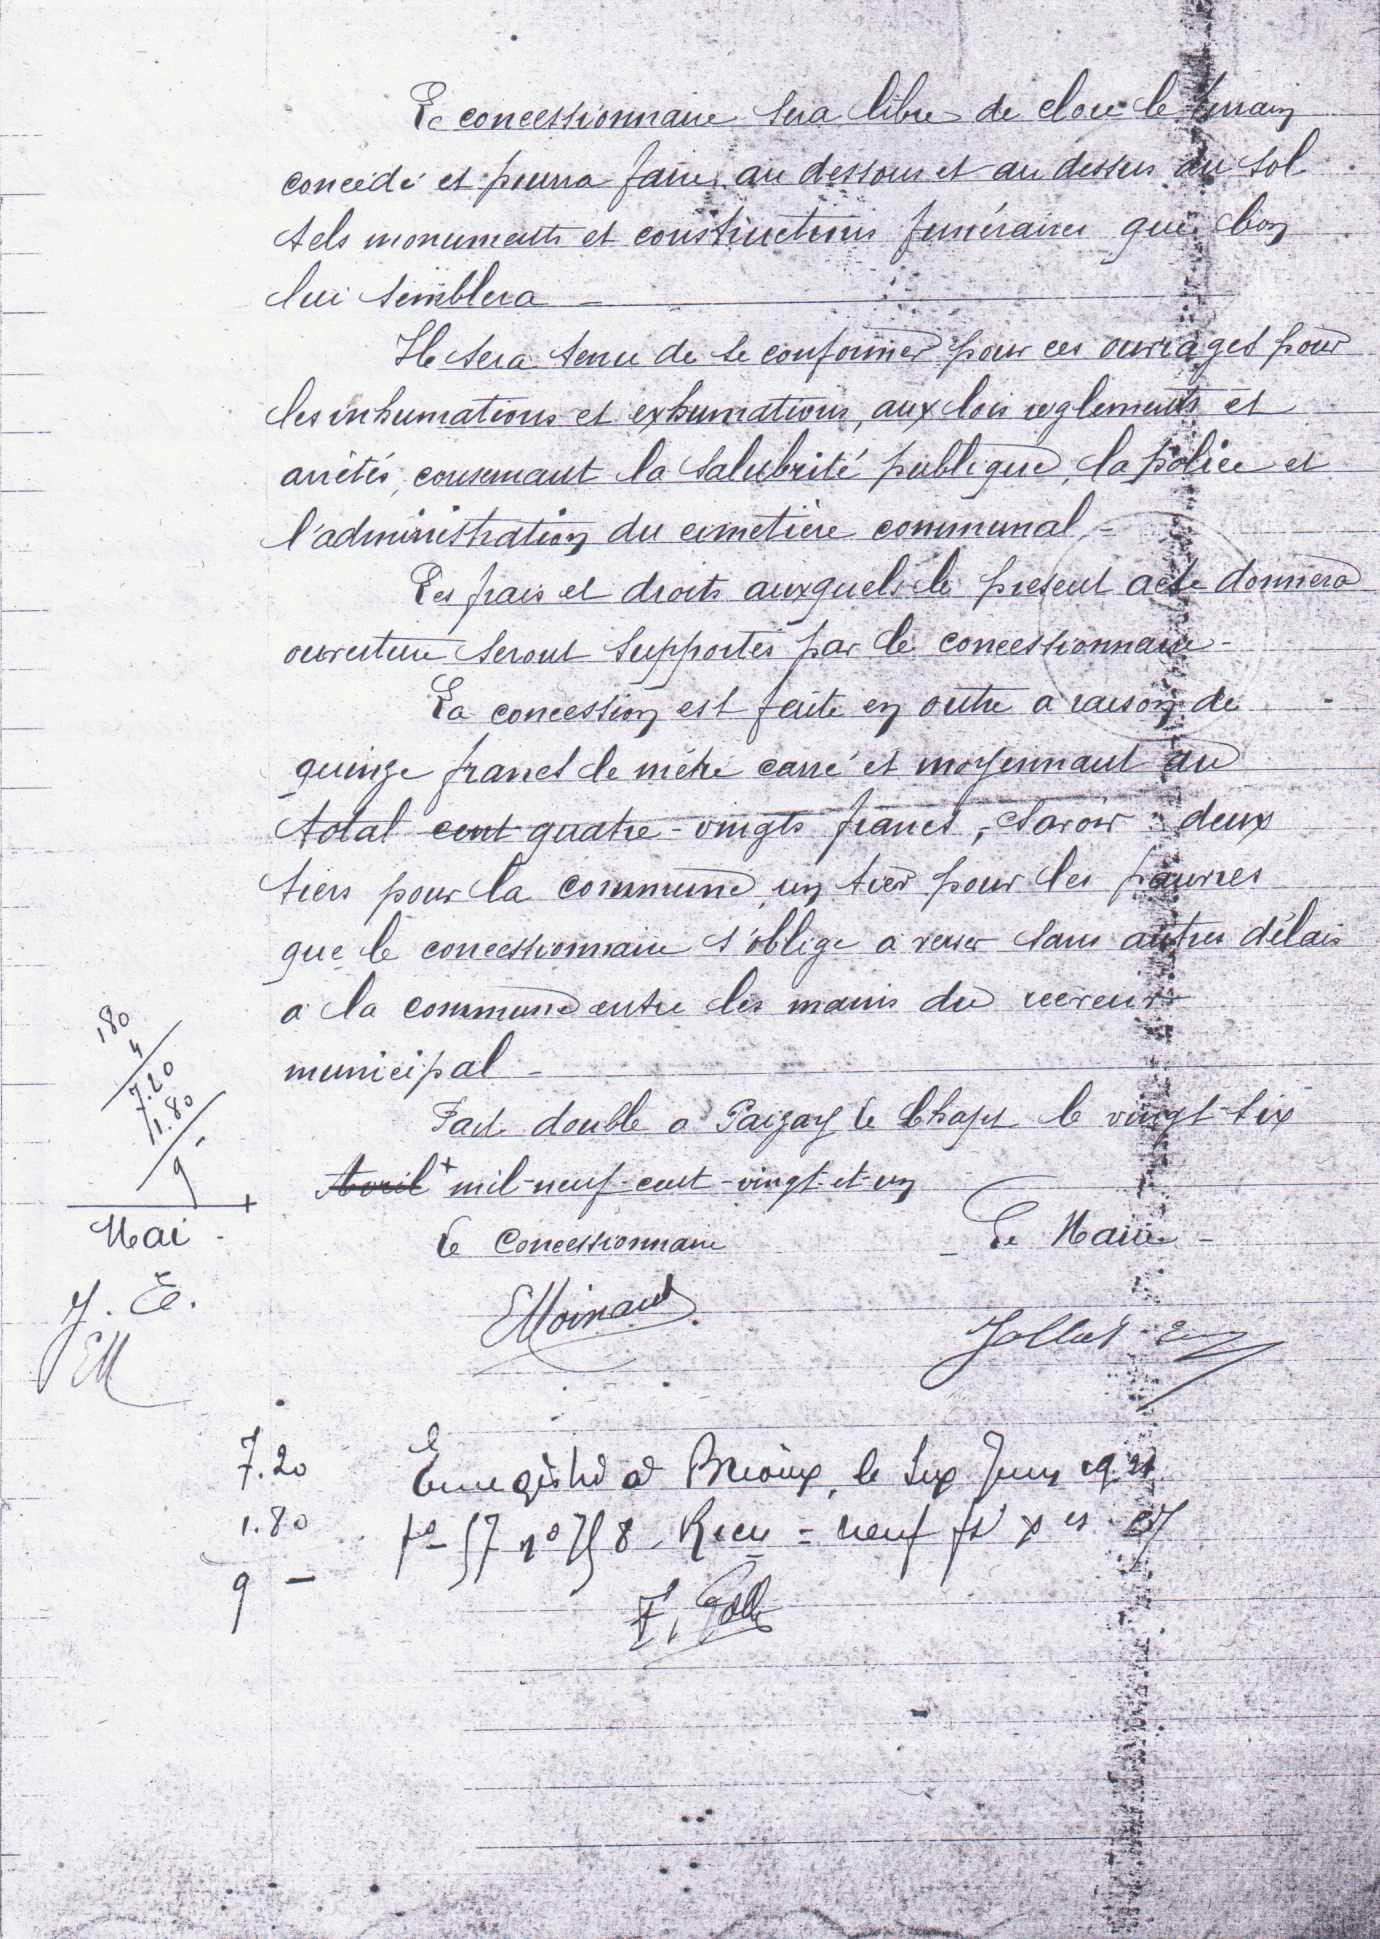 Le concessionnaire sera libre de clore le terrain
concédé et pourra faire, au dessous et au dessus du sol
tels monuments et constructions funéraires que bon
lui semblera —
Il sera tenu de se conformer pour ces ouvrages pour
les inhumations et exhumations, aux lois reglements et
arrêtés, concernant la salubrité publique, la police et
l'administration du cimetière communal =
Les frais et droits auxquels le present acte donnera
ouverture seront supportés par le concessionnaire -
La concession est faite en outre a raison de
quinze francs le métre carré et moyennant au
total cent quatre-vingts francs, savoir : deux
tiers pour la commune, un tier pour les pauvres
que le concessionnaire s'oblige a verser sans autres délais
a la commune entre les mains du receveur
municipal -
Fait double a Paizay le Chapt le vingt-six
Avril + mil-neuf-cent-vingt-et-un
180
4
7.20
1.80
9 -
+
Mai -
Le Concessionnaire
Le Maire -
J. E.
EM
EMoinard
7.20
Enregistré à Brioux, le six Juin 1921
1.80
fo 57 no 758 - Reçu = neuf fs
9 —